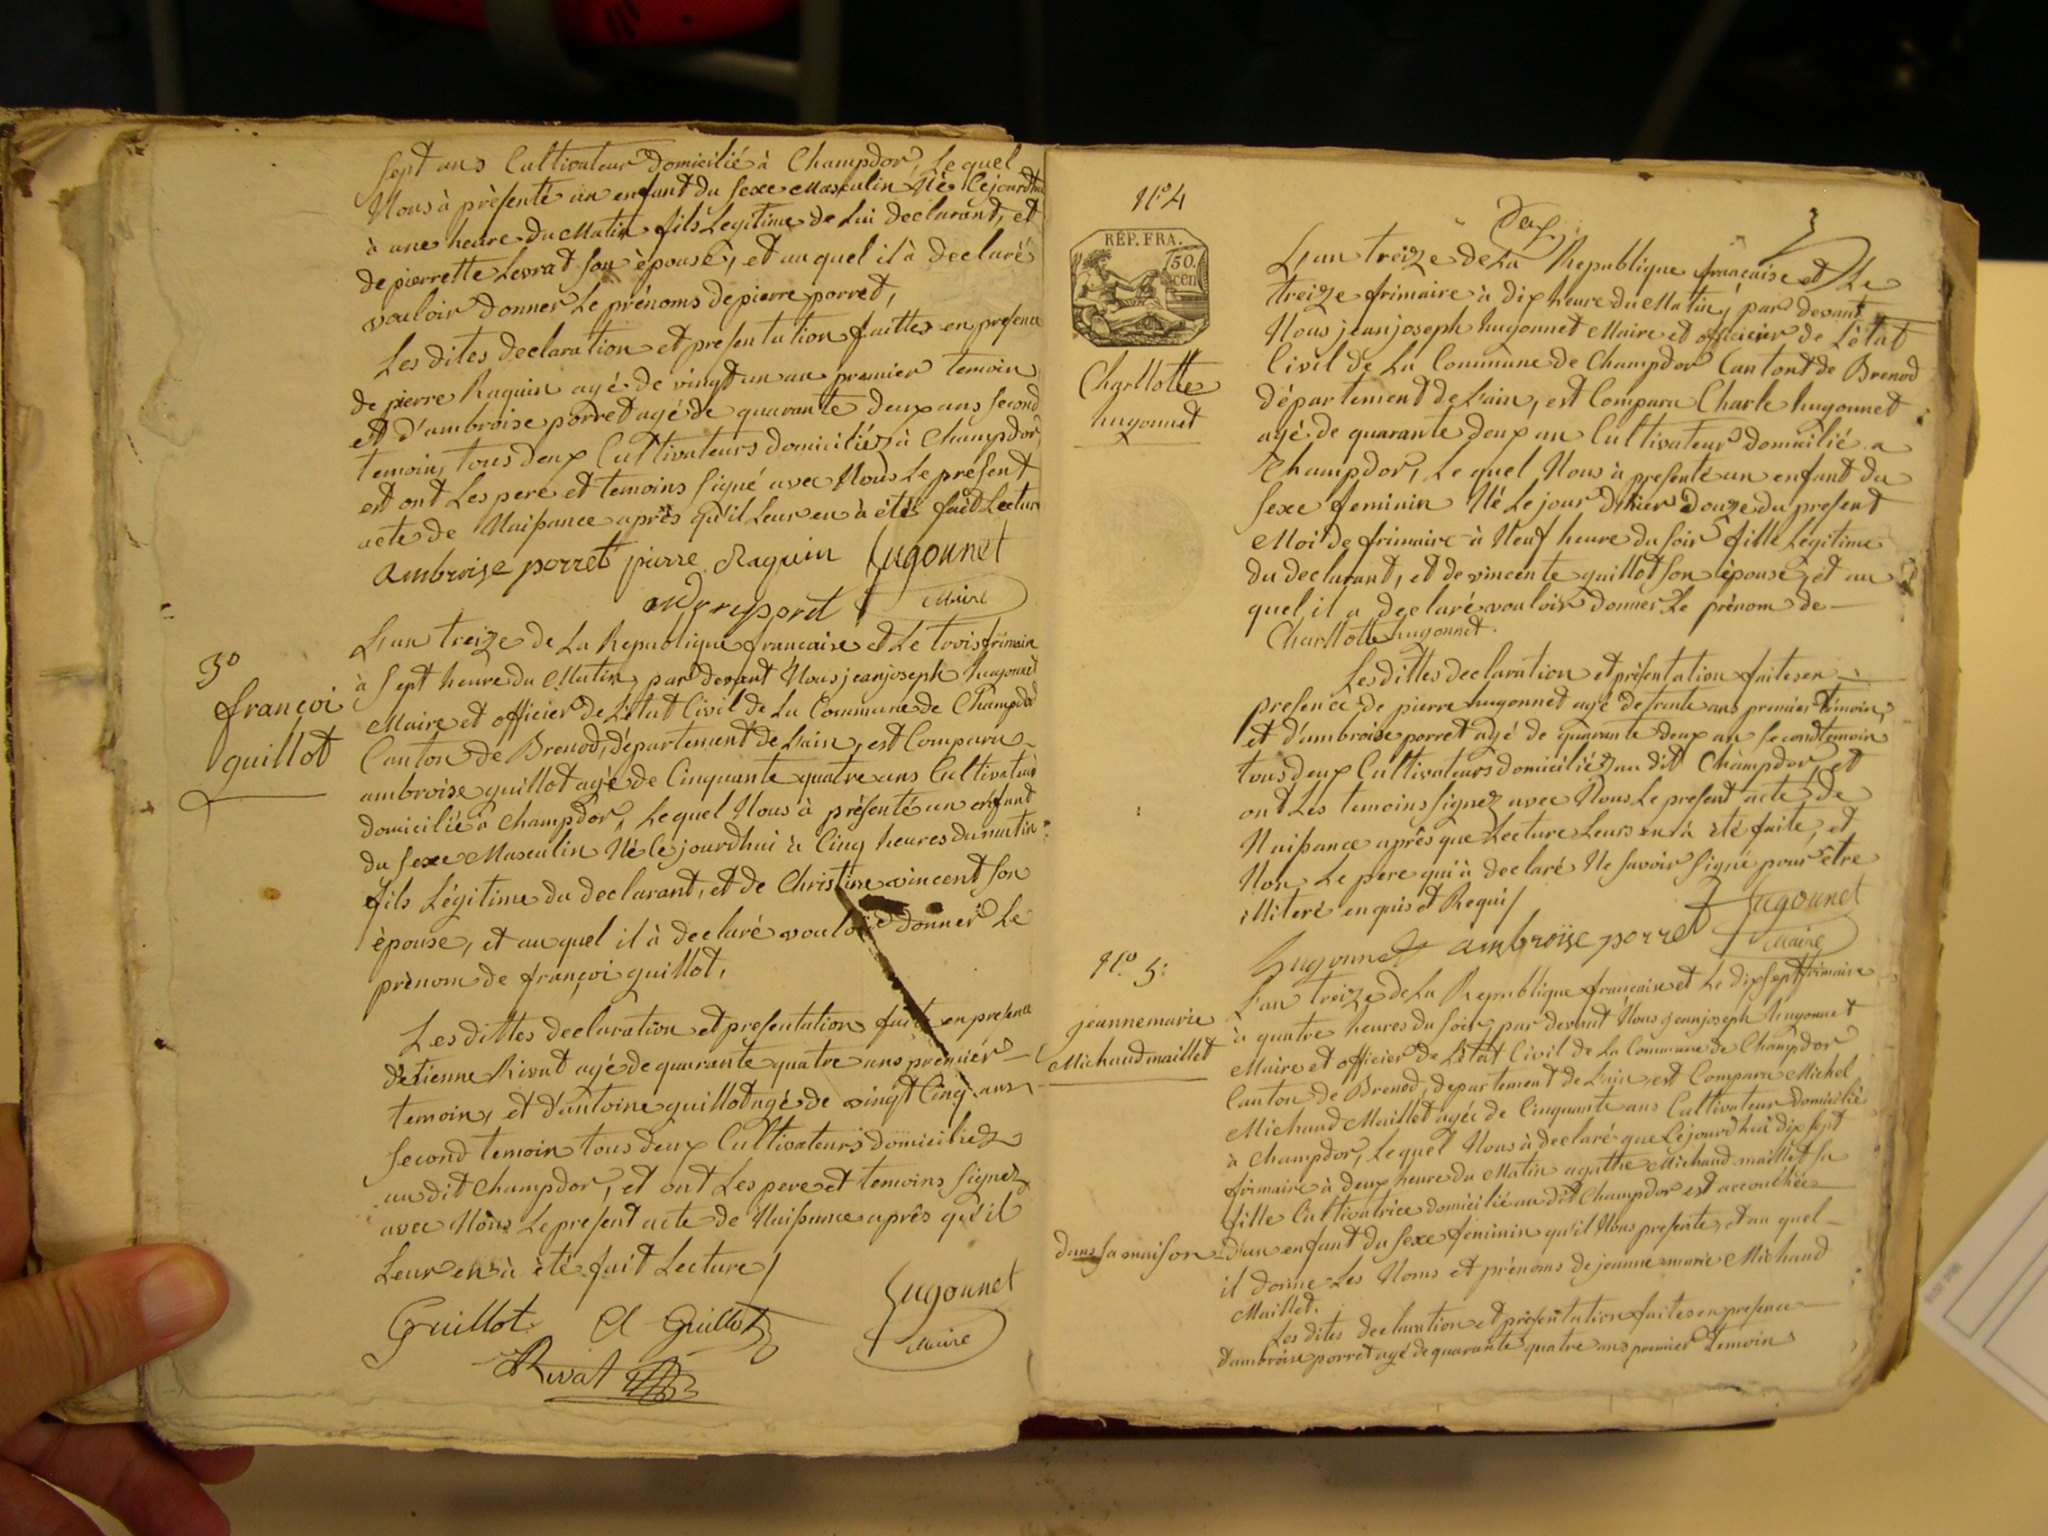 sept ans Cultivateur domicilié à Champdor, Lequel
Nous à présenté un enfant du sexe Masculin Né Cejourdhui
à une heure du Matin fils Legitime de Lui declarant, et
de pierrette Levrat son épouse, et auquel il à declaré
vouloir donner Le prénoms de pierre porret,
Les dites declaration et presentation faittes en presence
de pierre Raquin agé de vingt un an premier temoin
et d'ambroise porret agé de quarante deux ans second
temoin, tous deux Cultivateurs domiciliés à Champdor
et ont Les pere et temoins signé avec Nous Le present
acte de Naissance après qu'il Leur en à été fait Lecture
ambroise porret pierre Raquin hugonnet
porret Maire
3º
françoi
guillot
L'an treize de La Republique francaise et Le trois frimaire
à sept heure du Matin, par devant Nous jeanjoseph hugonnet
Maire et officier de L'état Civil de La Commune de Champdor
Canton de Brenod, département de L'ain, est Comparu
ambroise guillot agé de Cinquante quatre ans Cultivateur
domicilié à Champdor, Lequel Nous à présenté un enfant
du sexe Masculin Né Cejourdhui à Cinq heures du matin
fils Légitime du declarant, et de Christine vincent son
épouse, et auquel il à declaré vouloir donner Le
prènom de françoi guillot,
Les dittes declaration et presentation faite en presence
d'etienne Rivat agé de quarante quatre ans premier
temoin, et d'antoine guillot agé de vingt Cinq ans
second temoin tous deux Cultivateurs domiciliez
au dit Champdor, et ont Les pere et temoins signez
avec Nous Le present acte de Naissance après qu'il
Leur en à été fait Lecture /
Guillot A Guillot hugonnet
Rivat Maire
Nº 4
RÉP. FRA.
50.
cen
Charllotte
hugonnet
L'an treize de La Republique française et Le
treize frimaire à dix heure du Matin, par devant
Nous jeanjoseph hugonnet Maire et officier de L'état
Civil de La Commune de Champdor Cantont de Brenod
département de L'ain, est Comparu Charle hugonnet
agé de quarante deux an Cultivateur domicilié a
Champdor, Lequel Nous à presenté un enfant du
sexe feminin Né Le jour d'hier douze du present
Moi de frimaire à Neuf heure du soir fille Légitime
du declarant, et de vincente guillot son épouse, et au
quel il a declaré vouloir donner Le prénom de
Charllotte hugonnet.
Les dittes declaration et présentation faites en
presence de pierre hugonnet agé de trente ans premier temoin,
et d'ambroise porret agé de quarante deux an second temoin
tous deux Cultivateurs domiciliéz au dit Champdor, et
ont Les temoins signez avec Nous Le present acte de
Naissance après que Lecture Leurs en à été faite, et
Non Le pere qui à declaré Ne savoir signé pour être
illiteré enquis et Requi /
hugonnet ambroise porret hugonnet
Maire
Nº 5:
jeannemarie
Michaud maillet
L'an treize de La Republique francaise et Le dixsept frimaire
à quatre heures du soir, par devant Nous jeanjoseph hugonnet
Maire et officier de L'état Civil de La Commune de Champdor
Canton de Brenod, departement de L'ain, est Comparu Michel
Michaud Maillet agée de Cinquante ans Cultivateur domicilié
à Champdor, Lequel Nous à declaré que Cejourd'hui dixsept
frimaire à deux heure du Matin agathe Michaud maillet sa
fille Cultivatrice domicilié au dit Champdor est accouchée
dans sa maison d'un enfant du sexe feminin qu'il Nous presente, et au quel
il donne Les Noms et prénoms de jeanne marie Michaud
Maillet.
Les dites declaration et présentation faites en presence
d'ambroise porret agé de quarante quatre ans premier temoin